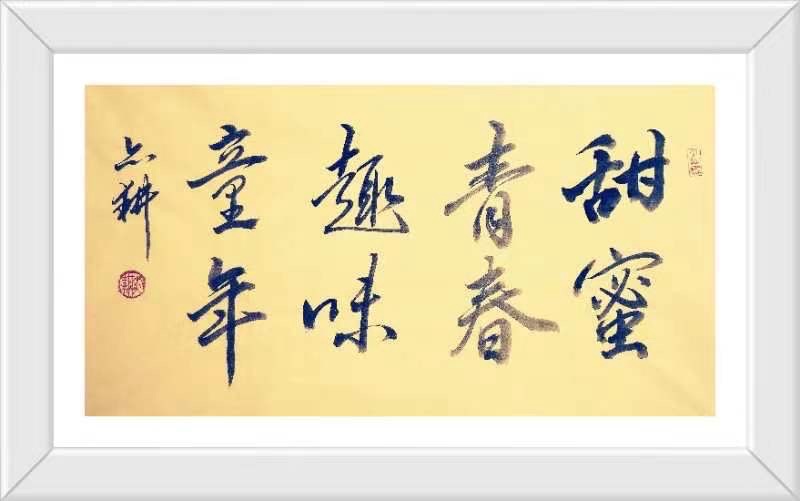 甜蜜
青春
趣味
童年